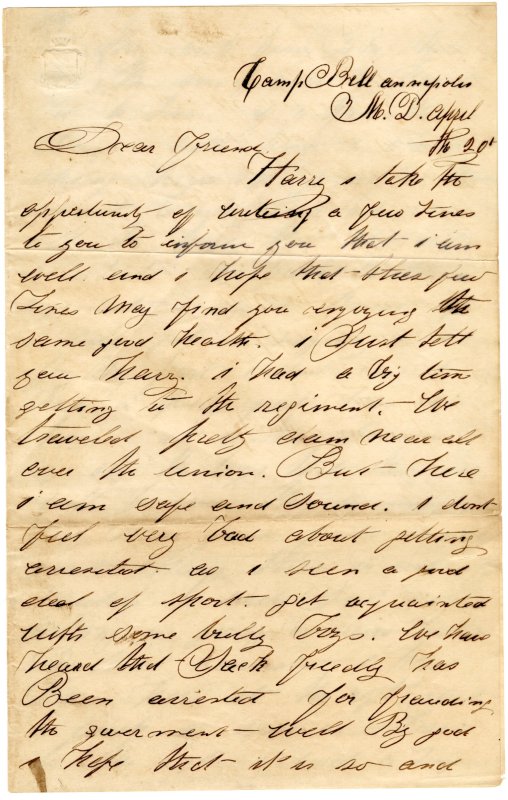 Camp Bell annapolis
M. D. april
the 20t
Dear Friend
Harry i take the
oppertunity of writing a few lines
to you to inform you that i am
well. and i hope that thes few
lines may find you enjoying the
same good health. i Just tell
you harry. i had a big time
getting to the regiment. We
traveled pretty dam near all
over the union. But here
i am safe and sound. i dont
feel very bad about getting
arrested. as i seen a good
deal of sport. get acquainted
with some bully boys. We have
heard that Jack has
Been arrested for frauding
the goverment well By god
i hope that it is so and